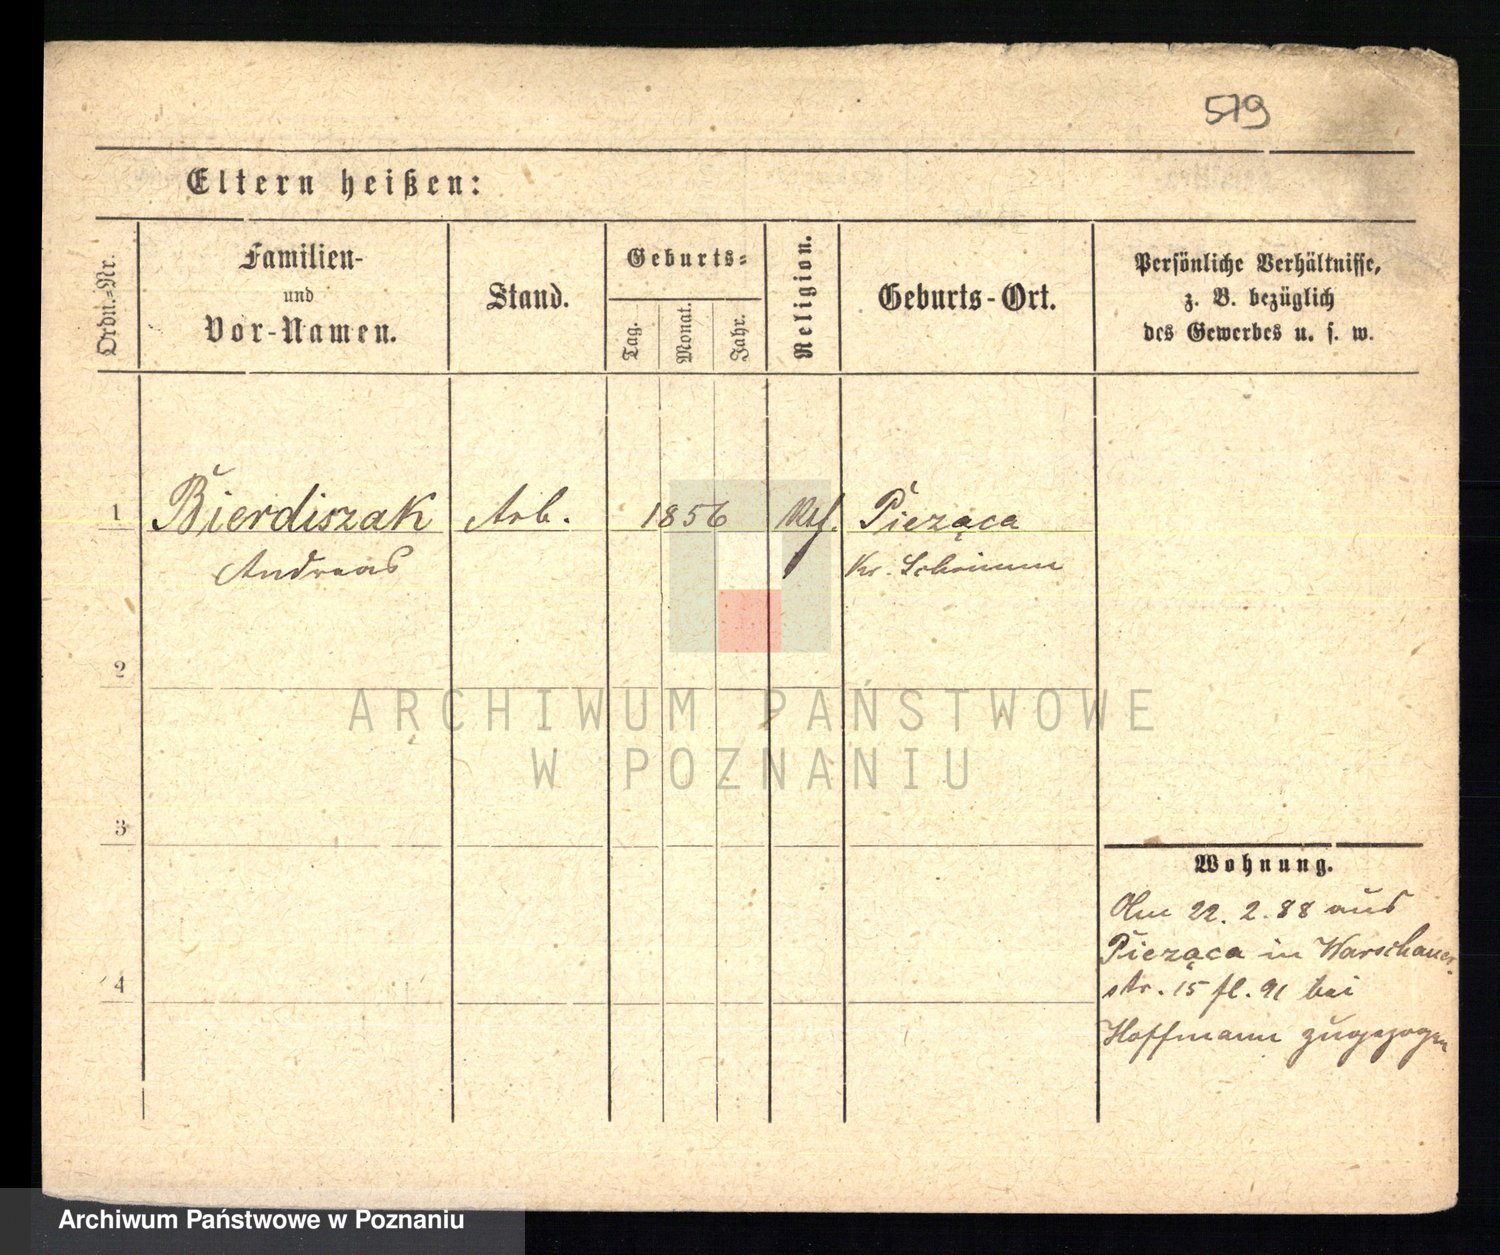 579
Eltern heißen:
Ordn.=Nr.
Familien-
und
Vor-Namen.
Stand.
Geburts=
Tag.
Monat.
Jahr.
Religion.
Geburts-Ort.
Persönliche Verhältnisse,
z. B. bezüglich
des Gewerbes u. s. w.
1 Bierdiszak Arb. 1856 Pieząca
Andreas Kr. Schrimm
2
ARCHIWUM PAŃSTWOWE
W POZNANIU
3
Wohnung.
Am 22. 2. 88 aus
Pieząca in Warschauer-
str. 15 fl. 91 bei
Hoffmann zugezogen
4
Archiwum Państwowe w Poznaniu